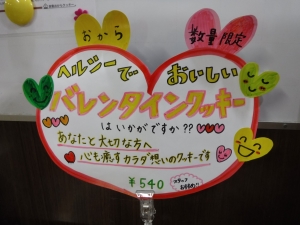 おから
数量限定
ヘルシーで おいしい
バレンタインクッキー
はいかがですか??
あなたと大切な方へ
心も癒すカラダ想いのクッキーです
¥540
スタッフ
おすすめ!!